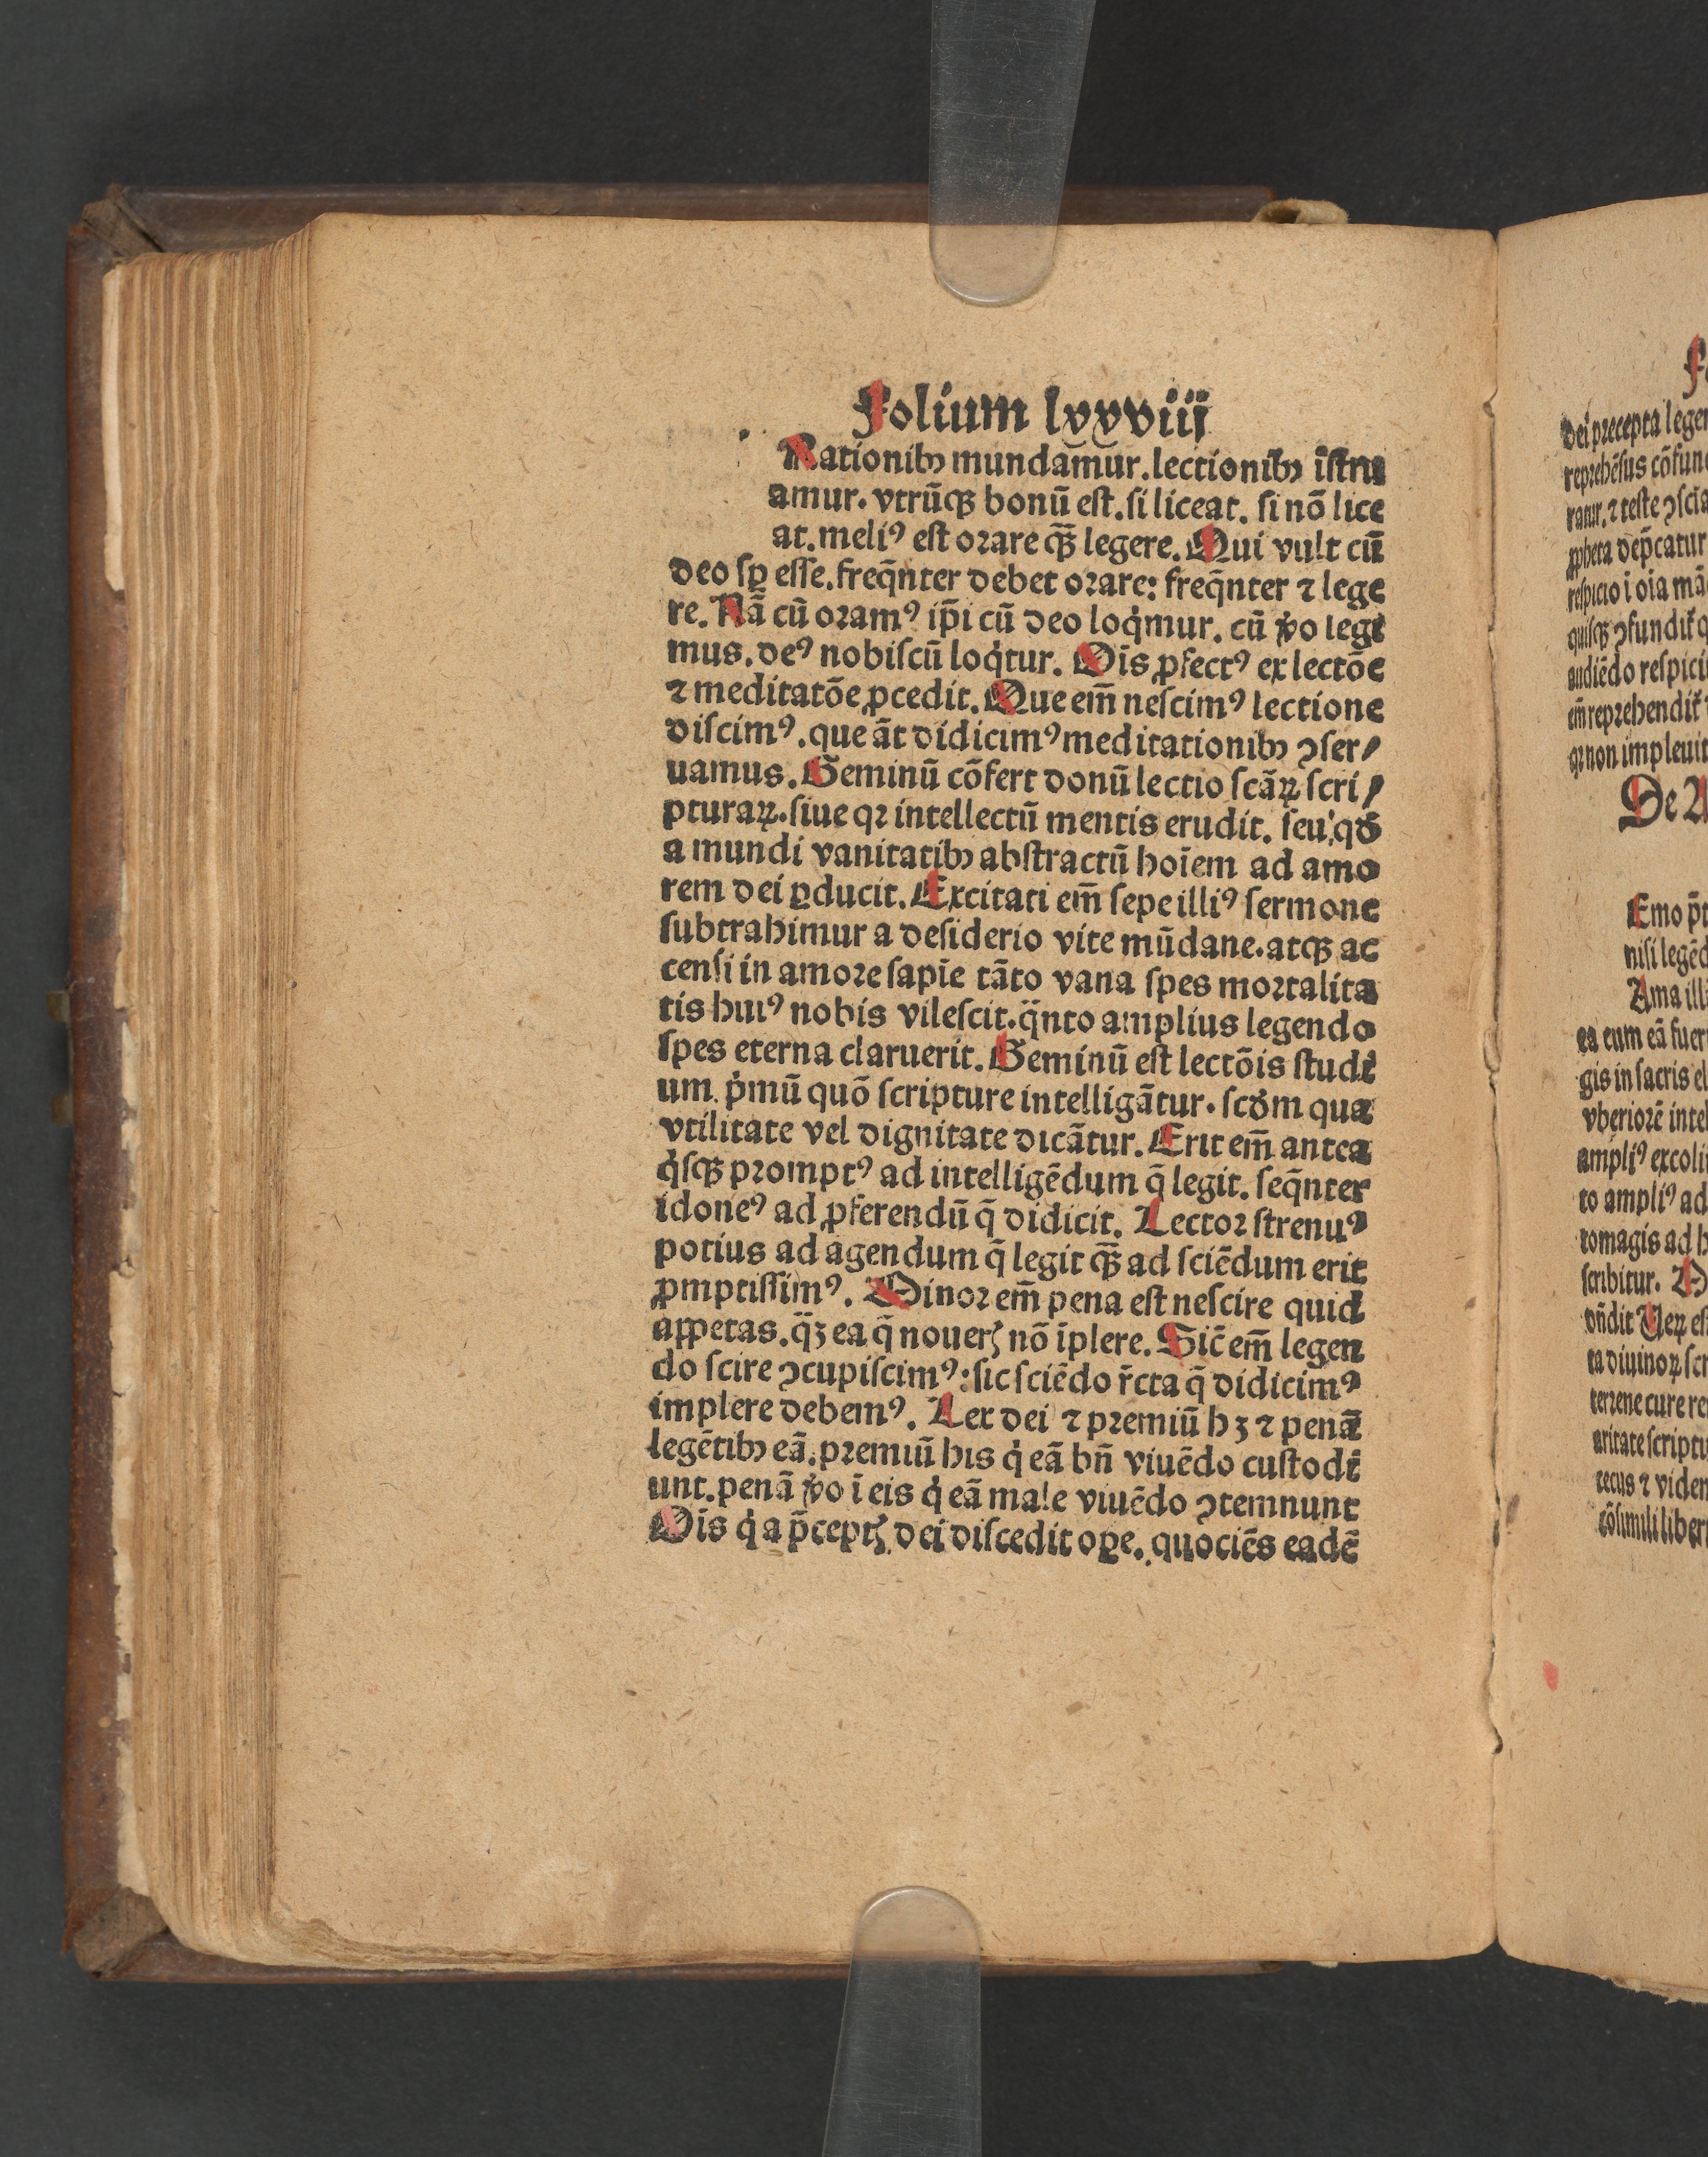 Folium lxxviij
Rationibꝰ mundam̃ur. lectionibꝰ ĩstru
amur. vtrũqꝫ bonũ est. si liceat. si nõ lice
at. meliꝰ est orare qꝫ̃ legere. Qui vult cũ
deo sꝑ esse. freq̃nter debet orare: freq̃nter ⁊ lege
re. Nã cũ oramꝰ ip̃i cũ deo loq̇mur. cũ ṽo legi
mus. deꝰ nobiscũ loq̇tur. Oĩs ꝓfectꝰ ex lectõe
⁊ meditatõe ꝓcedit. Que em̃ nescimꝰ lectione
discimꝰ. que ãt didicimꝰ meditationibꝰ ꝯser/
uamus. Geminũ cõfert donũ lectio scãꝝ scri/
pturaꝝ. siue qꝛ intellectũ mentis erudit. seu qđ
a mundi vanitatibꝰ abstractũ hoĩem ad amo
rem dei ꝑducit. Excitati em̃ sepe illiꝰ sermone
subtrahimur a desiderio vite mũdane. atqꝫ ac
censi in amore sapiẽ tãto vana spes mortalita
tis huiꝰ nobis vilescit. q̃nto amplius legendo
spes eterna claruerit. Geminũ est lectõis studi
um. ṗmũ quõ scripture intelligãtur. scđm qua
vtilitate vel dignitate dicãtur. Erit em̃ antea
q̇sqꝫ promptꝰ ad intelligẽdum q̃ legit. seq̃nter
idoneꝰ ad ꝓferendũ q̃ didicit. Lector strenuꝰ
potius ad agendum q̃ legit qꝫ̃ ad sciẽdum erit
ꝓmptissimꝰ. Minor em̃ pena est nescire quid
appetas. q̃ꝫ ea q̃ nouerꝭ nõ ĩplere. Sic̃ em̃ legen
do scire ꝯcupiscimꝰ: sic sciẽdo r̃cta q̃ didicimꝰ
implere debemꝰ. Lex dei ⁊ premiũ hꝫ ⁊ penã
legẽtibꝰ eã. premiũ his q̇ eã bñ viuẽdo custodi
unt. penã ṽo ĩ eis q̇ eã male viuẽdo ꝯtemnunt
Oĩs q̇ a p̃ceptꝭ dei discedit oꝑe. quociẽs eadẽ
dei precepta lege
reprehẽsus cõfun
ratur. ⁊ teste ꝯscĩa
ꝓpheta dep̃catur
respicio ĩ oĩa mã
quisqꝫ ꝯfundit̃
audiẽdo respici
em̃ reprehendit̃
qꝛ non impleuit
De
Emo
nisi legẽd
Ama ill
ea cum eã fuer
gis in sacris el
vberiorẽ intel
ampliꝰ excoli
to ampliꝰ ad
tomagis ad h
scribitur.
ta diuinoꝝ scr
terrene cure re
aritate scriptu
tecus ⁊ viden
cõsimili liber